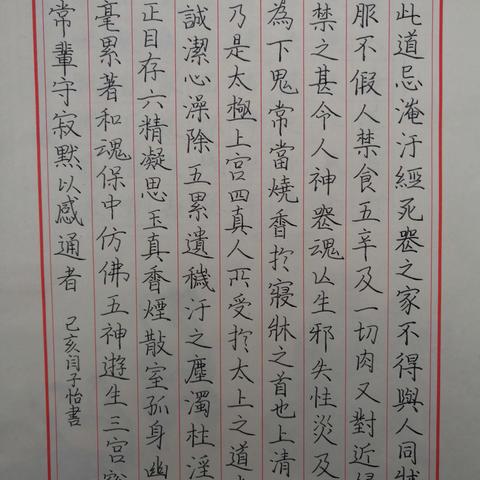 此道忌淹汙經死喪之家不得與人同牀
服不假人禁食五辛及一切肉又對近婦
禁之甚令人神喪魂亾生邪失性災及
為下鬼常當燒香扵寢牀之首也上清
乃是太極上宮四真人所受扵太上之道
誠潔心澡除五累遺穢汙之塵濁杜淫
正目存六精凝思玉真香煙散室孤身幽
毫累著和魂保中仿佛五神遊生三宮
常輩守寂默以感通者
己亥閆子怡書